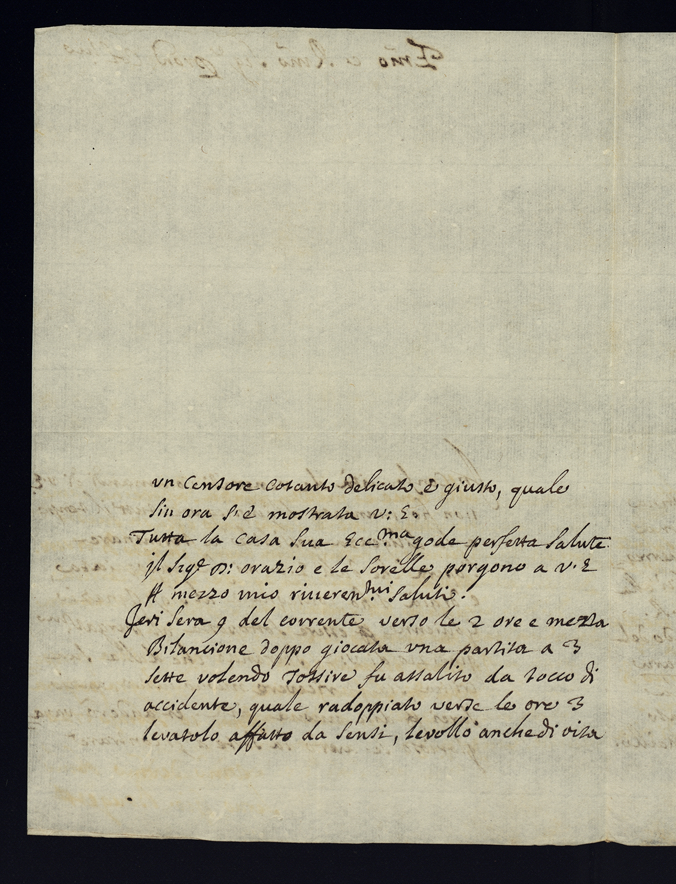 un Censore cotanto delicato e giusto, quale
sin ora s'è mostrata V: E
Tutta la Casa Sua Ecc.ma gode perfetta Salute
jl Sig.e D: orazio e le Sorelle porgono a V. E
mezzo mio riveren.mi Saluti.
Jeri Sera 9 del corrente verso le 2 ore e mezza
Bilancione doppo giocata una partita a 3
Sette volendo Tossire fu assalito da tocco di
accidente, quale radoppiato verso le ore 3
levatolo affatto da Sensi, levollo anche di vita